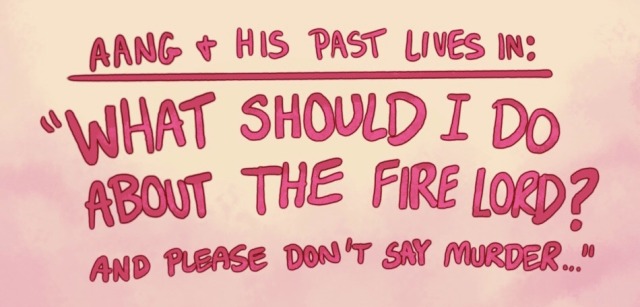 AANG + HIS PAST LIVES IN:
"WHAT SHOULD I DO
ABOUT THE FIRE LORD?
AND PLEASE DON'T SAY MURDER..."